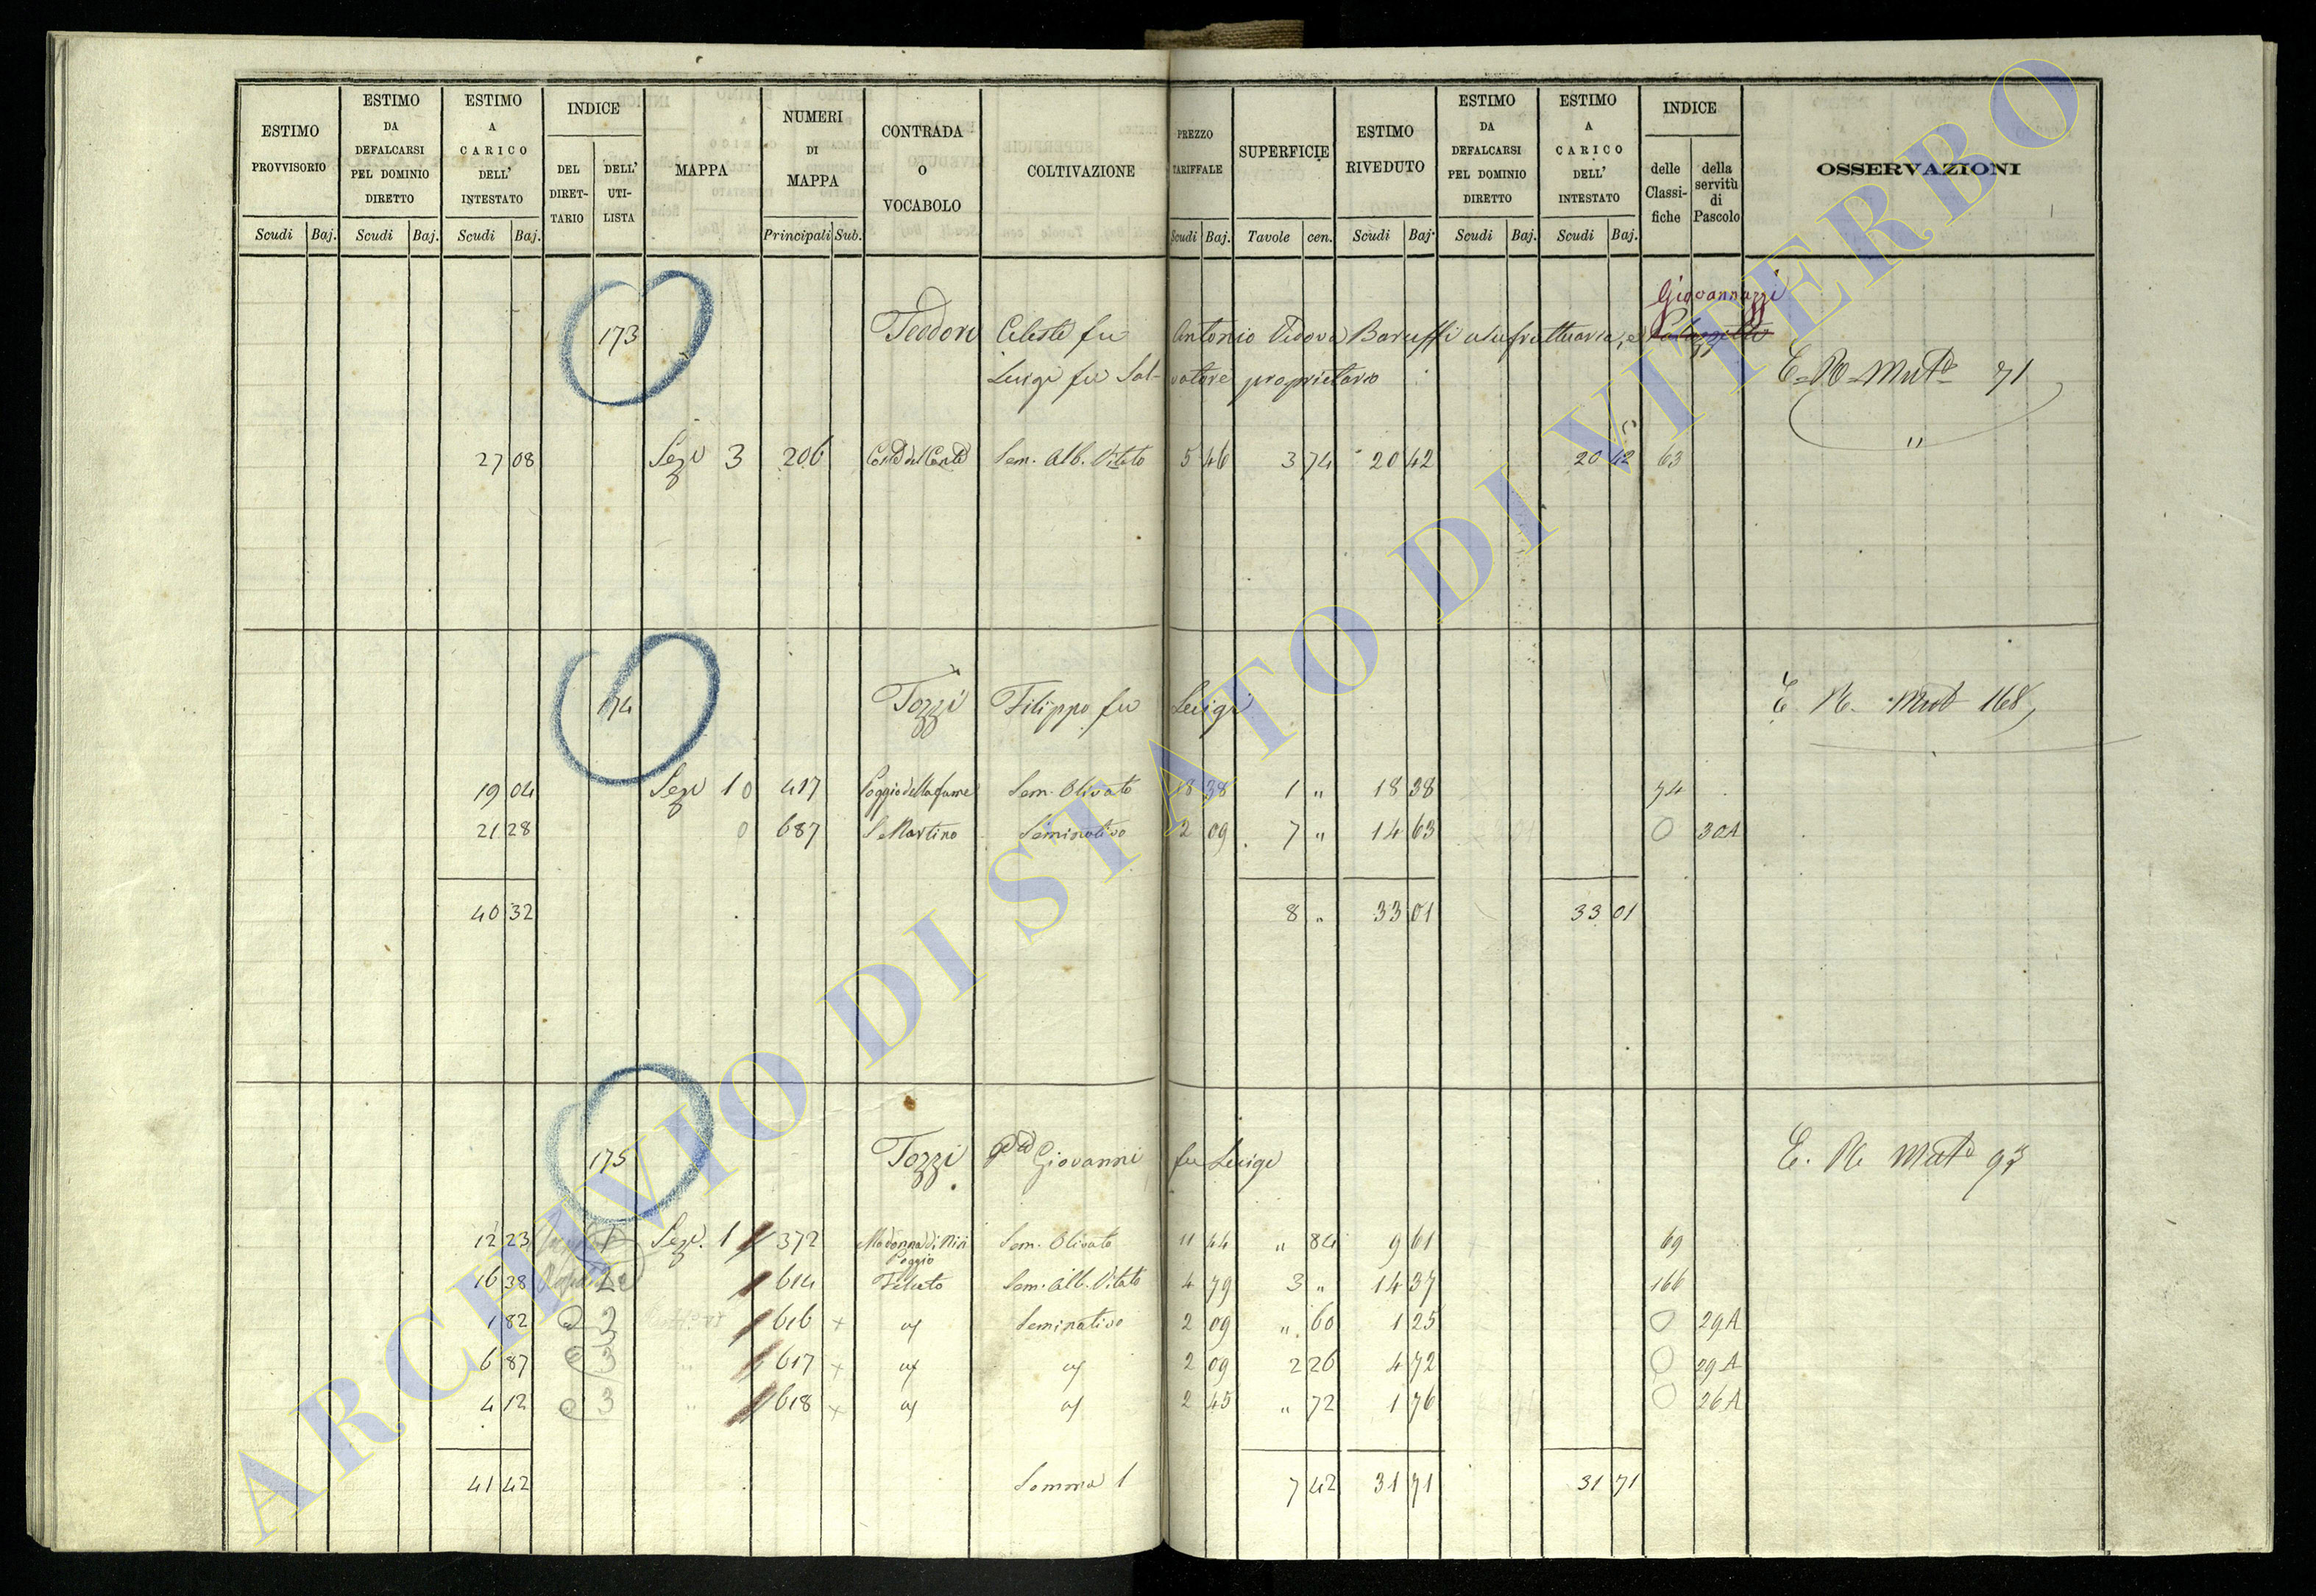 ESTIMO PROVVISORIO
ESTIMO DA DEFALCARSI PEL DOMINIO DIRETTO
ESTIMO A CARICO DELL' INTESTATO
INDICE
DEL DIRET-TARIO
DELL' UTI-LISTA
MAPPA
NUMERI DI MAPPA
CONTRADA O VOCABOLO
COLTIVAZIONE
PREZZO TARIFFALE
SUPERFICIE
ESTIMO RIVEDUTO
ESTIMO DA DEFALCARSI PEL DOMINIO DIRETTO
ESTIMO A CARICO DELL' INTESTATO
INDICE
delle Classi-fiche
della servitù di Pascolo
OSSERVAZIONI
Scudi Baj. Scudi Baj. Scudi Baj. Principali Sub. Scudi Baj. Tavole cen. Scudi Baj. Scudi Baj. Scudi Baj.
Giovannazzi
173 Teodori Celeste fu Antonio Vedova Baruffi usufruttuaria, e
Luigi fu Sal-vatore proprietario
E. R. Mut.e 71
27 08 Sez. 3 206 Sem. Alb. Vitato 5 46 3 74 20 42 20 42 63 "
174 Tozzi Filippo fu Luigi E. R. Mut 168
19 04 Sez. 1 0 417 Poggio della fame Sem. Olivato 18 38 1 " 18 38 74
21 28 0 687 S. Martino Seminativo 2 09 7 " 14 63 0 30A
40 32 8 " 33 01 33 01
175 Tozzi Giovanni fu Luigi E. R. Mut.e 93
12 23 1 Sez. 1 372 Madonna di Poggio Sem. Olivato 11 44 " 84 9 61 69
16 38 2 614 Felceto Sem. Alb. Vitato 4 79 3 " 14 37 166
1 82 2 616 x Seminativo 2 09 " 60 1 25 0 29A
6 87 3 617 x 2 09 2 26 4 72 0 29A
4 12 3 618 x 2 45 " 72 1 76 0 26A
41 42 Somma 1 7 42 31 71 31 71
ARCHIVIO DI STATO DI VITERBO